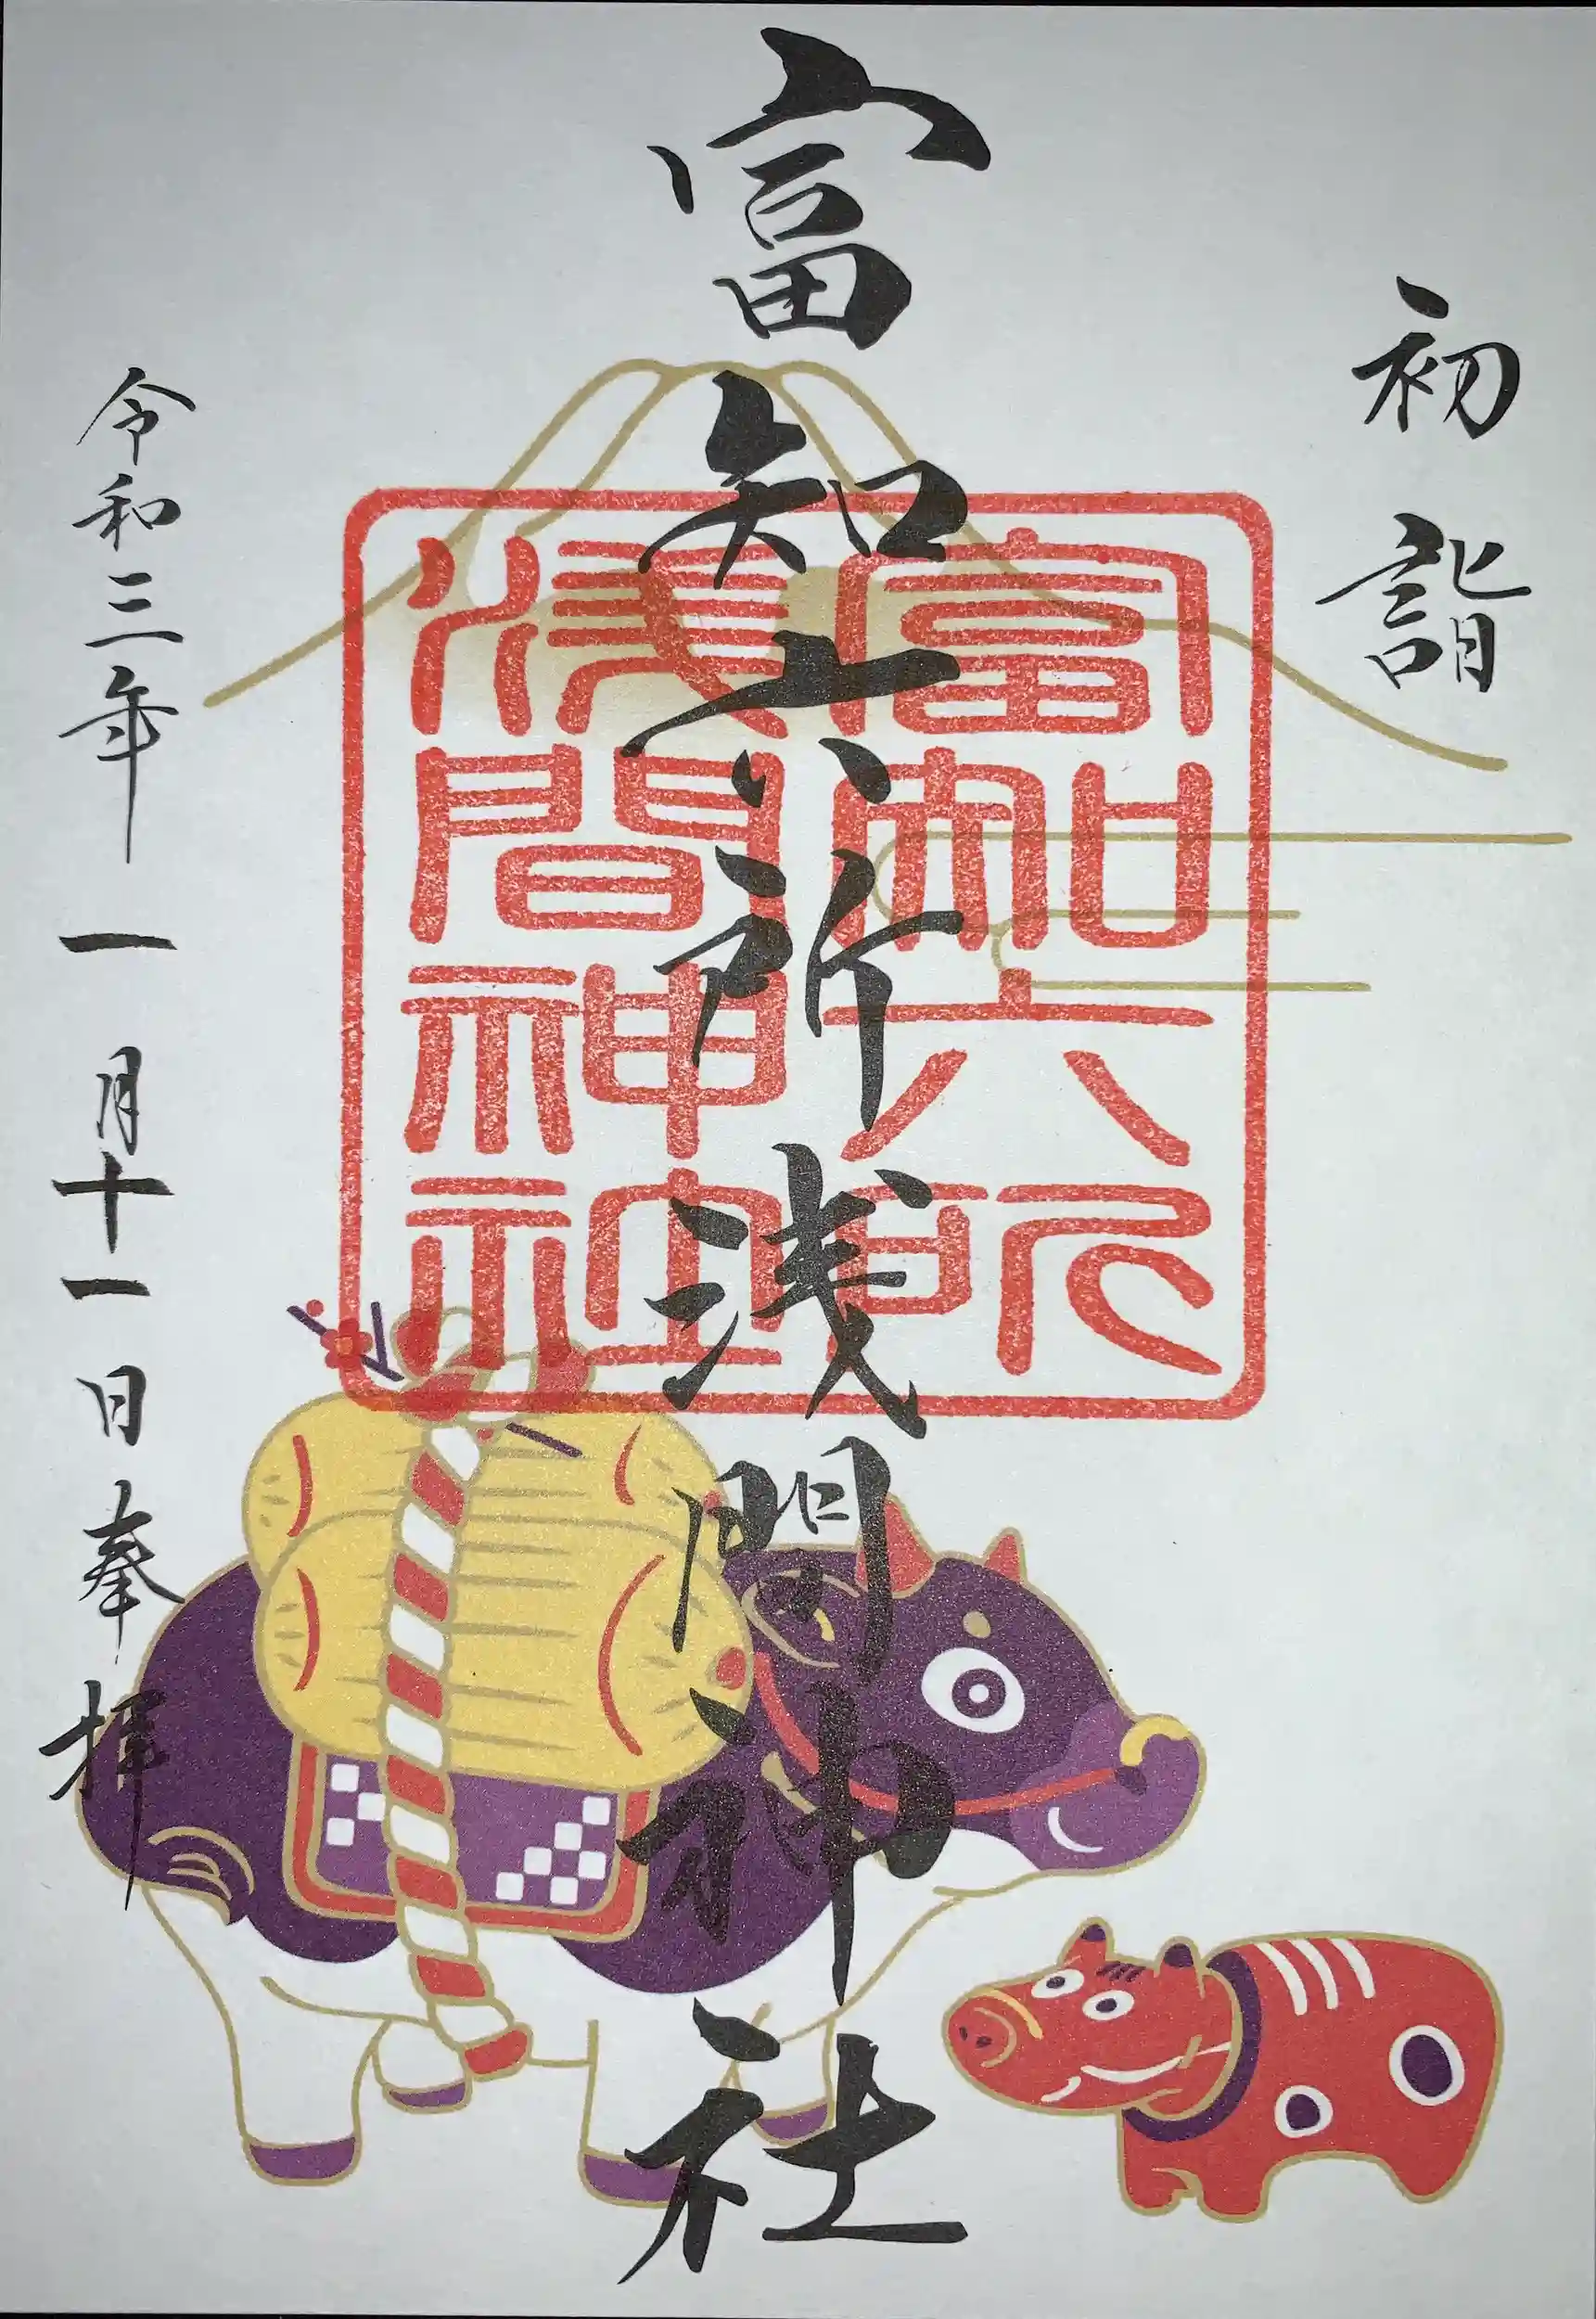 初詣
富知六所浅間神社
富知六所
浅間神社
令和三年一月十一日奉拝